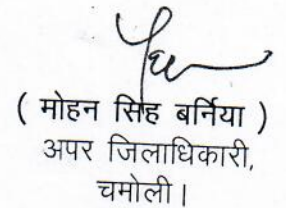 ( मोहन सिंह बर्निया )
अपर जिलाधिकारी,
चमोली।